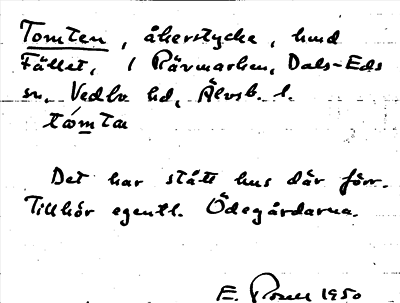 Tomten, åkerstycke, hmd
Fället, i Rävmarken, Dals-Eds
sn, Vedbo hd, Älvsb. l.
tómta
Det har stått hus där förr.
Tillhör egentl. Ödegårdarna.
E. 1950